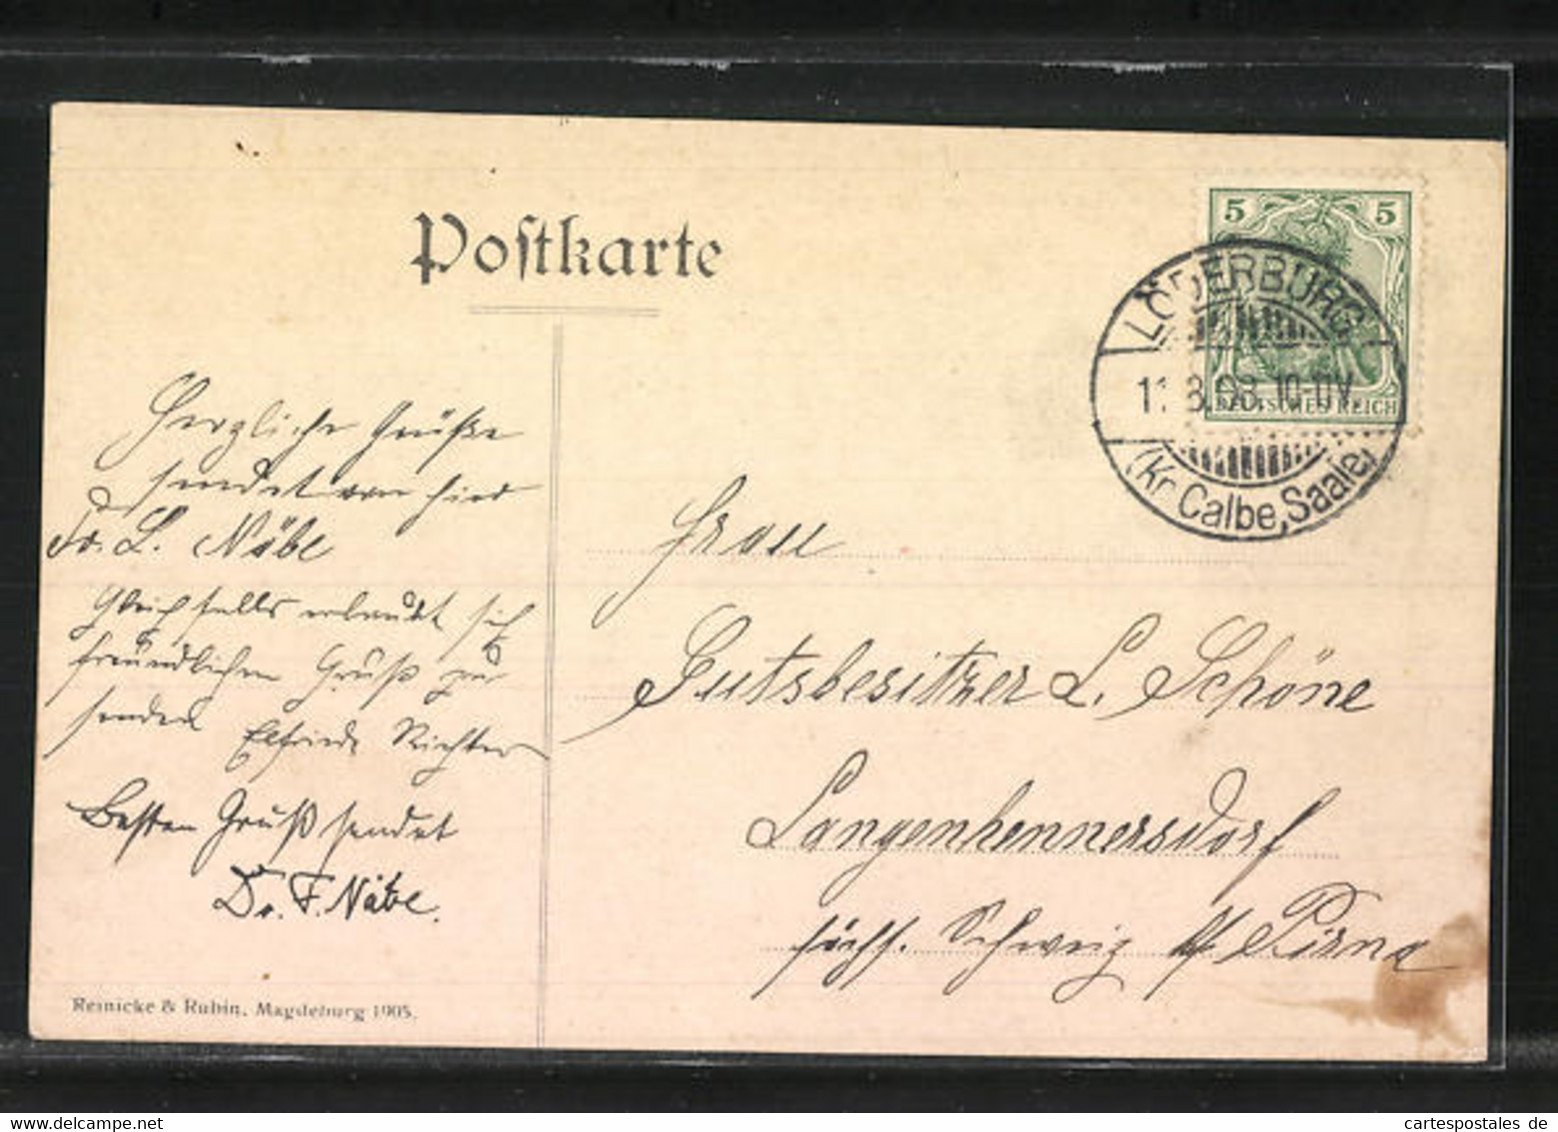 Postkarte
5 5
DEUTSCHES REICH
LÖDERBURG
11.8.08.10-11V.
(Kr. Calbe, Saale)
Herzliche Grüße
sendet von hier
Fr. L. Näbe
Gleichfalls erlaubt sich
freundlichen Gruß zu
senden Elfriede Richter
Besten Gruß sendet
Dr. F. Näbe.
Frau
Gutsbesitzer L. Schöne
Langenhennersdorf
sächs. Schweiz Pirna
Reinicke & Rubin, Magdeburg 1905.
cartespostales de